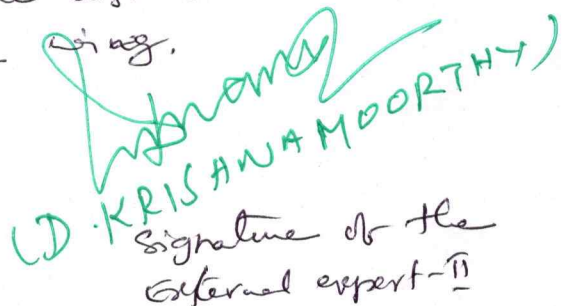 (D. KRISHNAMOORTHY)
Signature of the
External expert-II